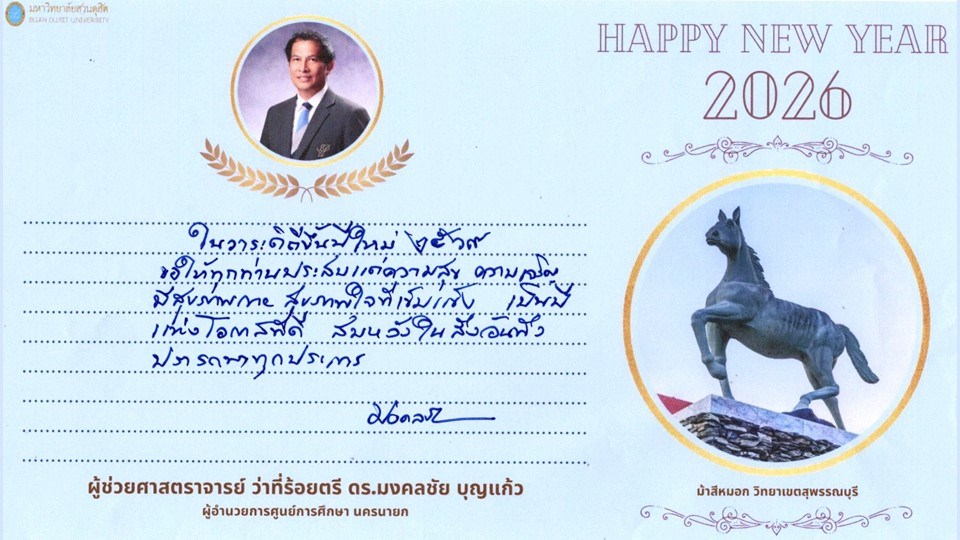 มหาวิทยาลัยสวนดุสิต
SUAN DUSIT UNIVERSITY
HAPPY NEW YEAR
2026
ในวาระดิถีขึ้นปีใหม่ ๒๕๖๙
ขอให้ทุกท่านประสบแต่ความสุข ความเจริญ
มีสุขภาพกาย สุขภาพใจที่เข้มแข็ง เป็นปี
แห่งโอกาสที่ดี สมหวังในสิ่งอันพึง
ปรารถนาทุกประการ
ผู้ช่วยศาสตราจารย์ ว่าที่ร้อยตรี ดร.มงคลชัย บุญแก้ว
ผู้อำนวยการศูนย์การศึกษา นครนายก
ม้าสีหมอก วิทยาเขตสุพรรณบุรี